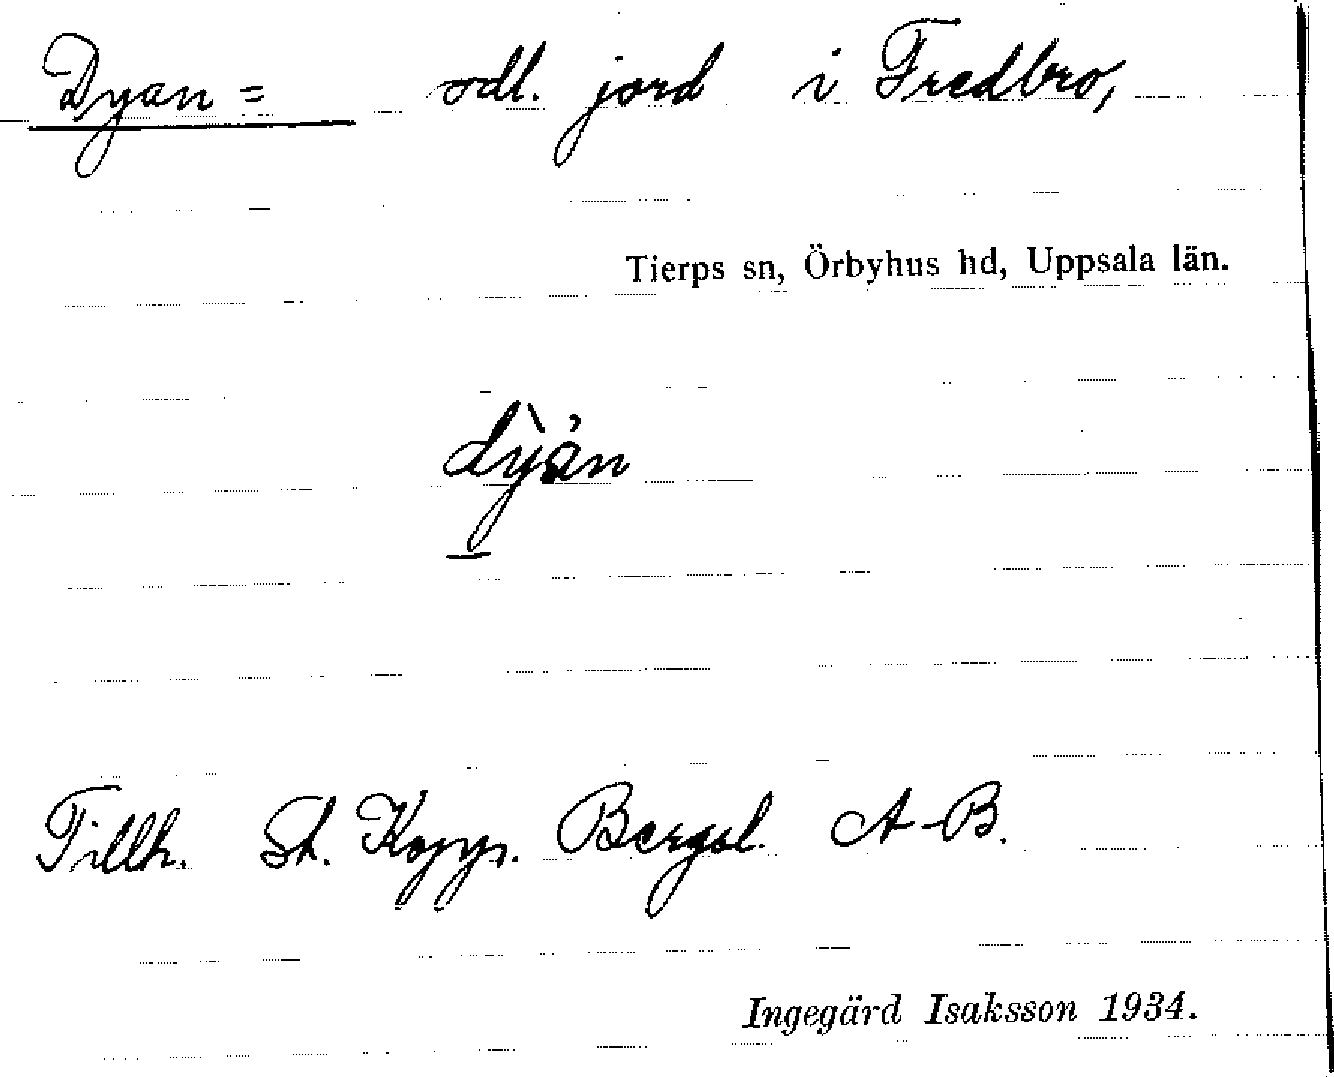 Dyan = odl. jord i Fredbro,
Tierps sn, Örbyhus hd, Uppsala län.
dỳa̓n
Tillh. St. Kopp. Bergsl. A-B.
Ingegärd Isaksson 1934.